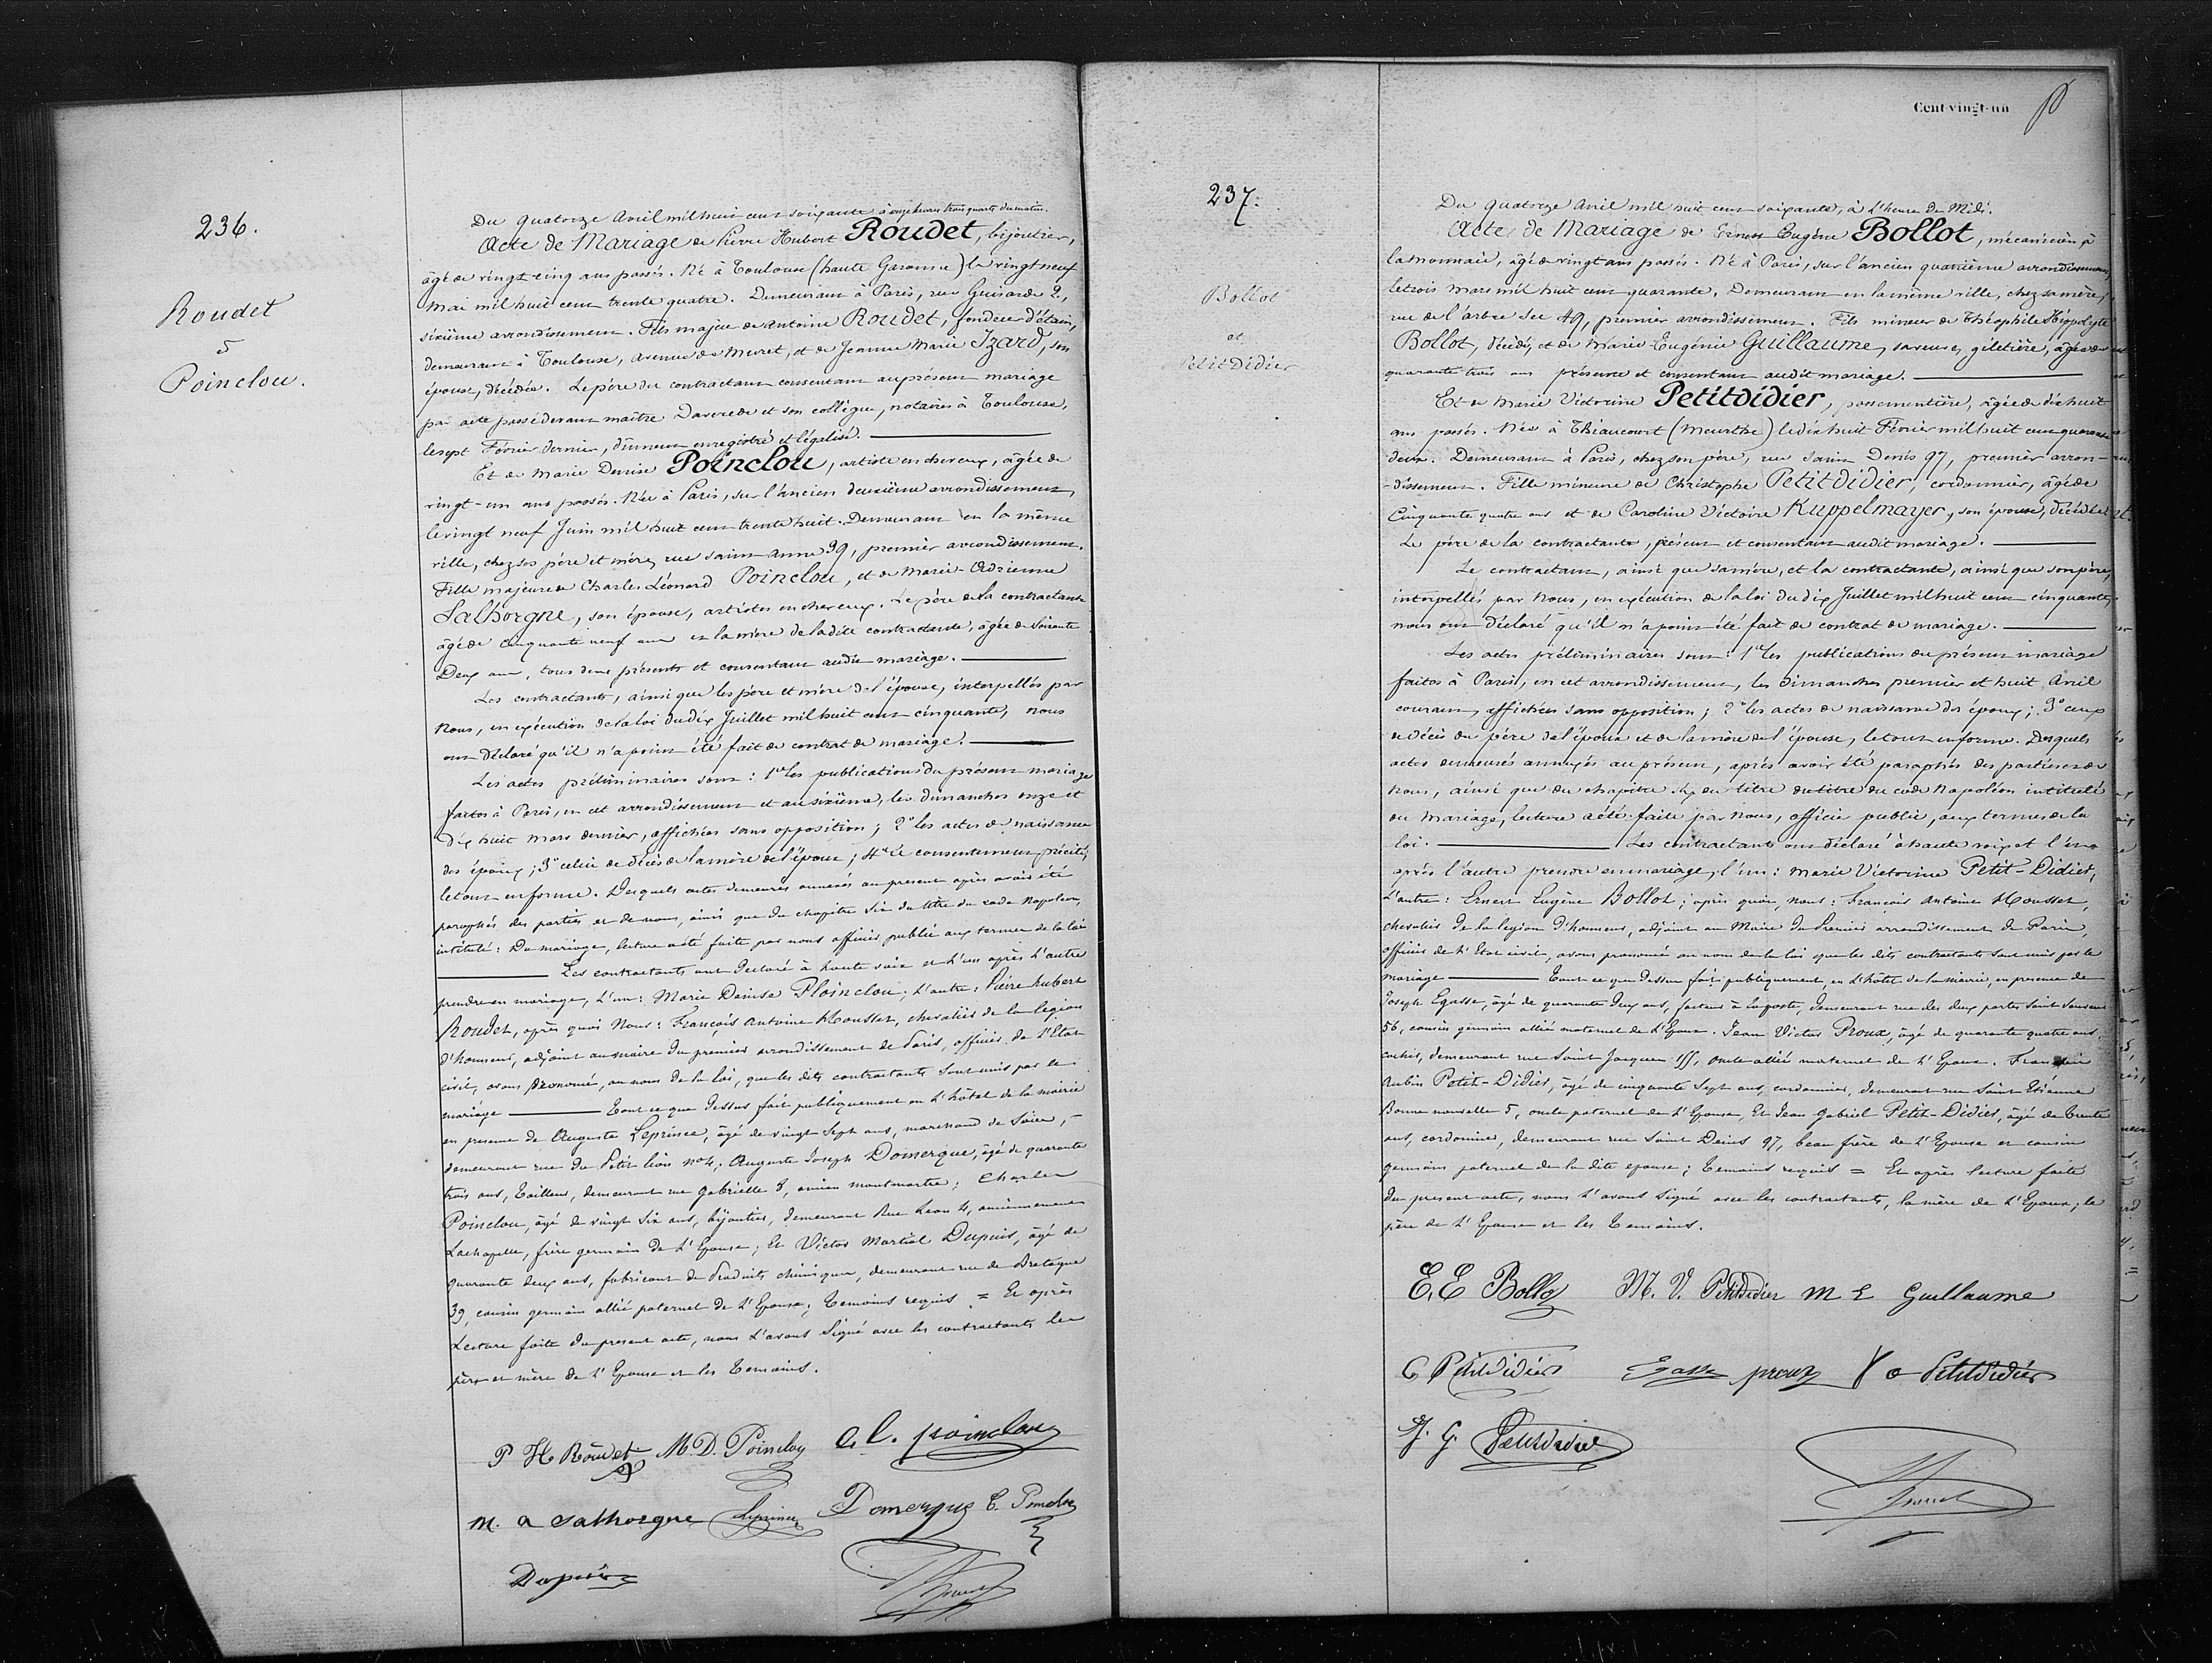 236.
Roudet
&
Poinclou.
Du quatorze Avril mil huit cent soixante à onze heures trois quarts du matin.
Acte de Mariage de Pierre Hubert Roudet, bijoutier,
âgé de vingt cinq ans passés. Né à Toulouse (haute Garonne) le vingt neuf
Mai mil huit cent trente quatre. Demeurant à Paris, rue Guisarde 2,
sixième arrondissement. Fils majeur de Antoine Roudet, fondeur d'étain,
demeurant à Toulouse, avenue de Muret, et de Jeanne Marie Izard, son
épouse, décédée. Le père du contractant consentant au présent mariage
par acte passé devant maître et son collègue, notaires à Toulouse,
le sept Février dernier, dûment enregistré et légalisé.
Et de Marie Denise Poinclou, artiste en cheveux, âgée de
vingt-un ans passés. Née à Paris, sur l'ancien deuxième arrondissement,
le vingt neuf Juin mil huit cent trente huit. Demeurant en la même
ville, chez ses père et mère, rue sainte anne 39, premier arrondissement.
Fille majeure de Charles Léonard Poinclou, et de Marie-Adrienne
Salhorgne, son épouse, artistes en cheveux. Le père de la contractante
âgé de cinquante neuf ans et la mère de la dite contractante, âgée de Soixante
Deux ans, tous deux présents et consentant audit mariage.
Les contractants, ainsi que les père et mère de l'épouse, interpellés par
Nous, en exécution de la loi du dix Juillet mil huit cent cinquante, nous
ont déclaré qu'il n'a point été fait de contrat de mariage.
Les actes préliminaires sont : 1° les publications du présent mariage
faites à Paris, en cet arrondissement et au sixième, les dimanches onze et
dix huit mars dernier, affichées sans opposition ; 2° les actes de naissance
des époux ; 3° celui de décès de la mère de l'époux ; 4° le consentement précité,
le tout en forme. Desquels actes demeurés annexés au present après avoir été
paraphés des parties et de nous, ainsi que du chapitre Six du titre du code Napoléon,
intitulé : Du mariage, lecture a été faite par nous officier public aux termes de la loi
Les contractants ont Déclaré à haute voix et l'un après l'autre
prendre en mariage, L'un : Marie Denise Ploinclou ; L'autre : Pierre hubert
Roudet, après quoi Nous : François Antoine Housset, chevalier de la legion
d'honneur, adjoint au maire du premier arrondissement de Paris, officier de l'Etat
civil, avons prononcé, au nom de la loi, que les dits contractants Sont unis par le
mariage Tout ce que Dessus fait publiquement en l'hôtel de la mairie
en presence de Auguste Leprince, âgé de vingt Sept ans, marchand de Soies,
demeurant rue du Petit lion no 4 ; Auguste Joseph Domerque, âgé de quarante
trois ans, Tailleur, demeurant rue gabrielle 8, ancien montmartre ; Charles
Poinclou, âgé de vingt Six ans, bijoutier, demeurant Rue Leon 4, anciennement
Lachapelle, frère germain de l'Epouse ; Et Victor Martial Dupuis, âgé de
quarante deux ans, fabricant de Produits chimiques, demeurant rue de Bretagne
39, cousin germain allié paternel de l'Epouse ; Temoins requis = Et après
Lecture faite du present acte, nous l'avons Signé avec les contractants les
père et mère de l'Epouse et les Temoins.
P H Roudet M.D. Poinclou C. L. poinclou
M. a Salhorgne Leprince Domergue C. Poinclou
Dupuis
Cent-vingt-un
237.
Bollot
et
PetitDidier
Du quatorze Avril mil huit cent soixante, à l'heure de Midi.
Acte de Mariage de Ernest Eugène Bollot, mécanicien à
la monnaie, âgé de vingt ans passés. Né à Paris, sur l'ancien quatrième arrondissement,
le trois Mars mil huit cent quarante. Demeurant en la même ville, chez sa mère,
rue de l'arbre sec 49, premier arrondissement. Fils mineur de Théophile Hippolyte
Bollot, décédé, et de Marie Eugénie Guillaume, sa veuve, giletière, âgée de
quarante trois ans présente et consentant audit mariage.
Et de Marie Victorine Petitdidier, passementière, âgée de dix huit
ans passés. Née à Thiaucourt (Meurthe) le dix huit Février mil huit cent quarante
deux. Demeurant à Paris, chez son père, rue Saint Denis 97, premier arron-
-dissement. Fille mineure de Christophe Petitdidier, cordonnier, âgé de
Cinquante quatre ans et de Caroline Victoire Kuppelmayer, son épouse, décédée.
Le père de la contractante, présent et consentant audit mariage.
Le contractant, ainsi que sa mère, et la contractante, ainsi que son père,
interpellés par Nous, en exécution de la loi du dix Juillet mil huit cent cinquante,
nous ont déclaré qu'il n'a point été fait de contrat de mariage.
Les actes préliminaires sont : 1° les publications du présent mariage
faites à Paris, en cet arrondissement, les dimanches premier et huit Avril
courant, affichées sans opposition ; 2° les actes de naissance des époux ; 3° ceux
de décès du père de l'époux et de la mère de l'épouse, le tout en forme. Desquels
actes demeurés annexés au présent, après avoir été paraphés des parties et de
Nous, ainsi que du chapitre six du titre du titre du code Napoléon intitulé
du Mariage, lecture a été faite par Nous, officier public, aux termes de la
loi. Les contractants ont déclaré à haute voix et l'un
après l'autre prendre en mariage, l'un : Marie Victorine Petit-Didier,
L'autre : Ernest Eugène Bollot ; après quoi, nous : François Antoine Housset,
chevalier de la legion d'honneur, adjoint au Maire du Premier arrondissement de Paris,
officier de l'Etat civil, avons prononcé au nom de la loi que les dits contractants Sont unis par le
mariage Tout ce que Dessus fait publiquement en l'hôtel de la mairie, en presence de
Joseph Egasse, âgé de quarante Deux ans, facteur à la poste, demeurant rue des deux portes Saint Sauveur
56, cousin germain allié maternel de l'Epoux. Jean Victor Proux, âgé de quarante quatre ans,
cocher, demeurant rue Saint Jacques 155, oncle allié maternel de l'Epoux. François
Aubin Petit-Didier, âgé de cinquante Sept ans, cordonnier, demeurant rue Saint Etienne
Bonne nouvelle 5, oncle paternel de l'Epouse, Et Jean Gabriel Petit-Didier, âgé de trente
ans, cordonnier, demeurant rue Saint Denis 97, beau frère de l'Epouse et cousin
germain paternel de la dite epouse ; Temoins requis = Et après lecture faite
du present acte, nous l'avons Signé avec les contractants, la mère de l'Epoux, le
père de l'Epouse et les Temoins.
E. E Bollot M. V. Petitdidier M E Guillaume
C Petitdidier Egasse proux f a Petitdidier
J. G. Petitdidier